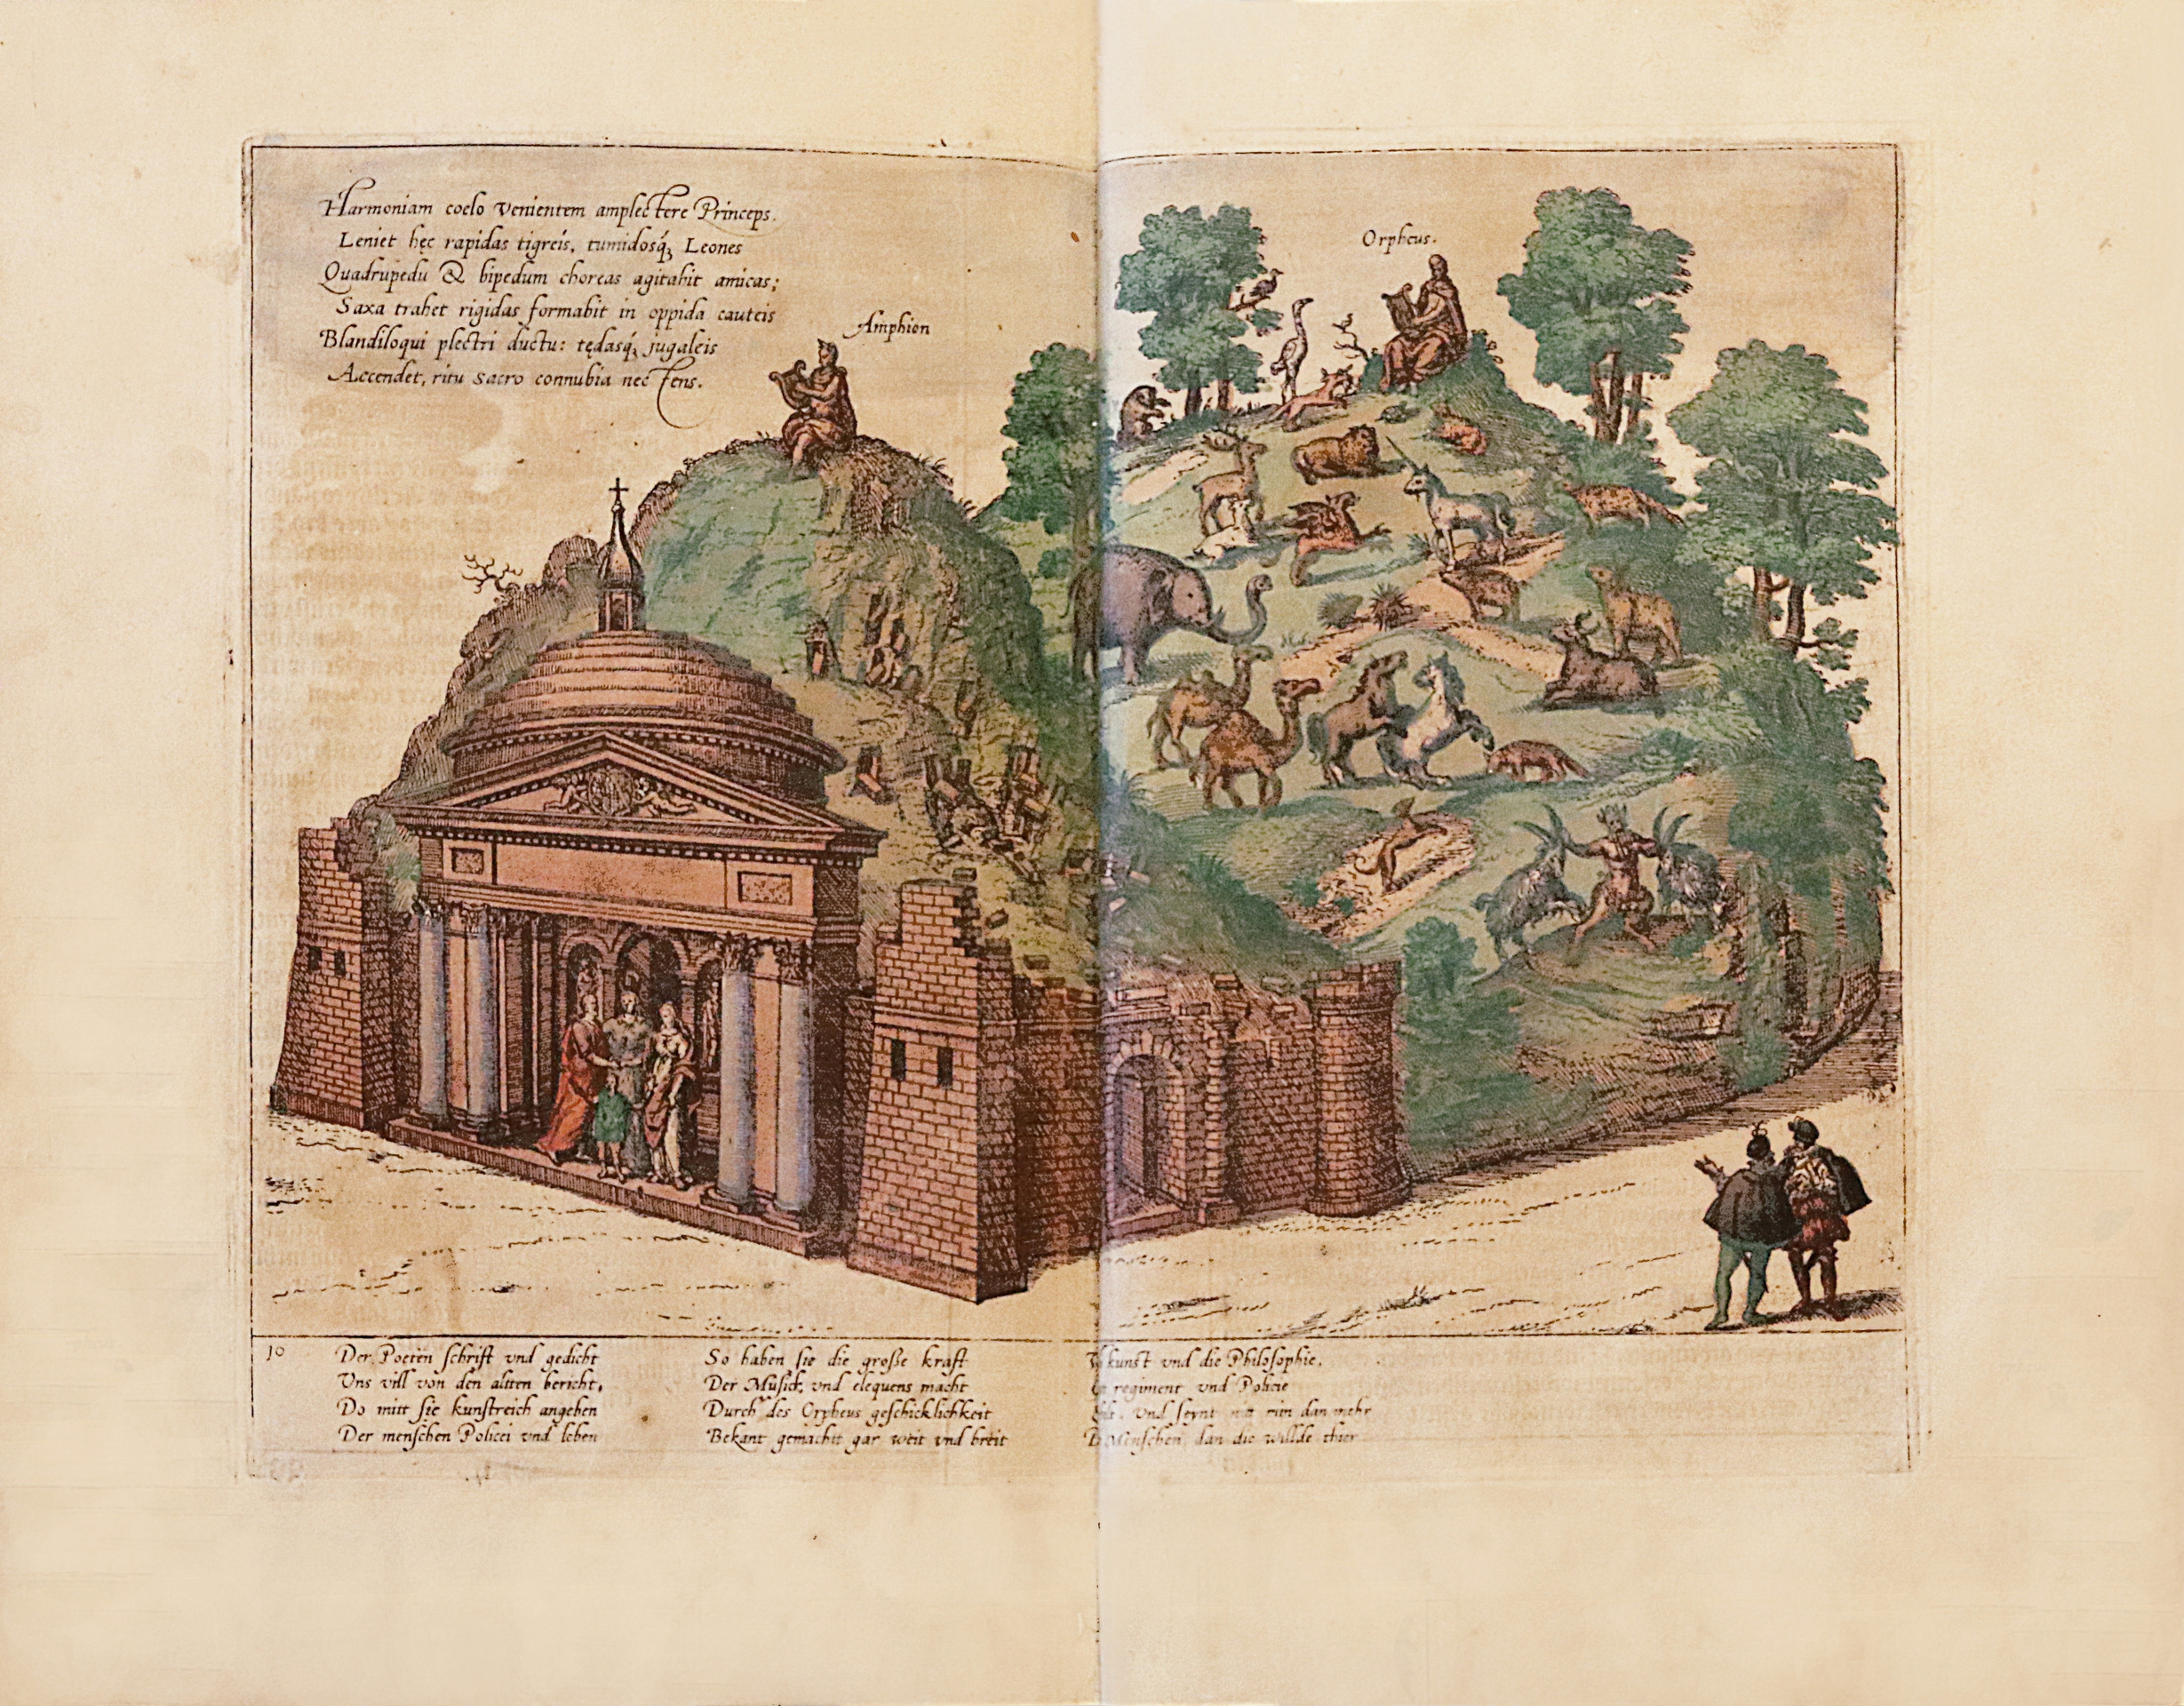 Harmoniam coelo venientem amplectere Princeps.
Leniet hęc rapidas tigreis, tumidosq́ꝫ Leones
Quadrupedū & bipedum choreas agitabit amicas;
Saxa trahet rigidas formabit in oppida cauteis
Blandiloqui plectri ductu: tędasq́ꝫ jugaleis
Accendet, ritu sacro connubia nectens.
Amphion
Orpheus.
10
Der Poeten schrift vnd gedicht
Uns vill von den alten bericht,
Do mitt sie kunstreich angeben
Der menschen Policei vnd leben
So haben sie die große kraft
Der Musick, vnd elequens macht
Durch des Orpheus geschicklichkeit
Bekant gemacht gar weit vnd breit
kunst vnd die Philosophie,
regiment vnd Policie
vnd seynt dan mehr
Menschen, dan die willde thier